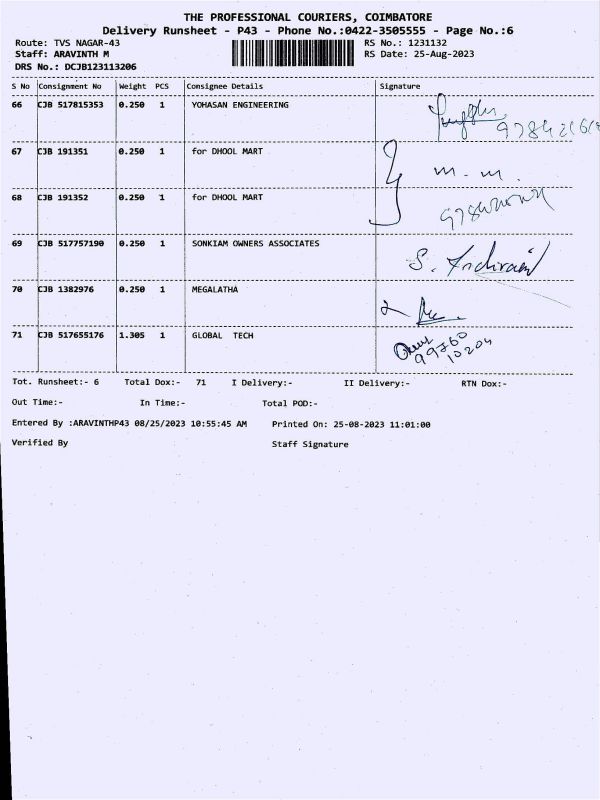 THE PROFESSIONAL COURIERS, COIMBATORE
Delivery Runsheet - P43 - Phone No.:0422-3505555 - Page No.:6
Route: TVS NAGAR-43 RS No.: 1231132
Staff: ARAVINTH M RS Date: 25-Aug-2023
DRS No.: DCJB123113206
S No Consignment No Weight PCS Consignee Details Signature
66 CJB 517815353 0.250 1 YOHASAN ENGINEERING
67 CJB 191351 0.250 1 for DHOOL MART m. m.
68 CJB 191352 0.250 1 for DHOOL MART
69 CJB 517757190 0.250 1 SONKIAM OWNERS ASSOCIATES S.
70 CJB 1382976 0.250 1 MEGALATHA
71 CJB 517655176 1.305 1 GLOBAL TECH 99760
10204
Tot. Runsheet:- 6 Total Dox:- 71 I Delivery:- II Delivery:- RTN Dox:-
Out Time:- In Time:- Total POD:-
Entered By :ARAVINTHP43 08/25/2023 10:55:45 AM Printed On: 25-08-2023 11:01:00
Verified By Staff Signature